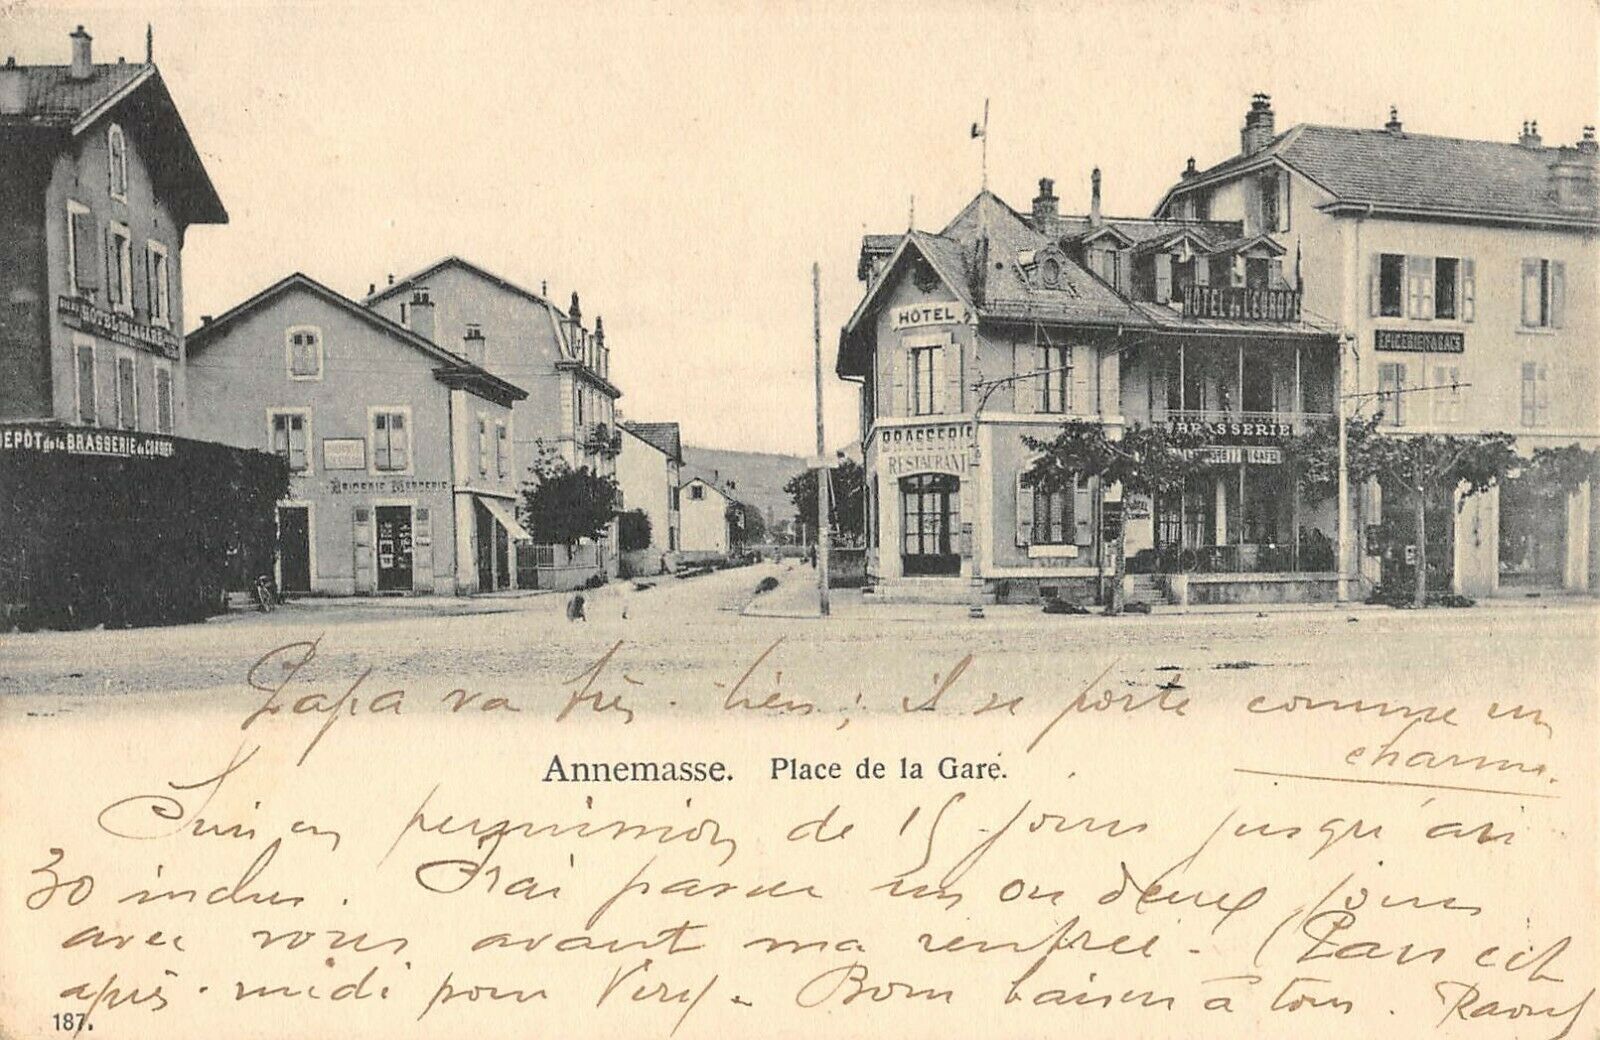 HÔTEL DE LA GARE
DEPÔT de la BRASSERIE de
MERCERIE
HÔTEL
BRASSERIE
RESTAURANT
HÔTEL DE L'EUROPE
BRASSERIE
EPICERIE TABACS
Papa va très bien ; il se porte comme un
charme.
Annemasse. Place de la Gare.
Suis en permission de 15 jours jusqu'au
30 inclus. J'rai passer un ou deux jours
avec vous avant ma rentrée. (Pars cet
après-midi pour Viry. Bons baisers à tous. Raoul
187.